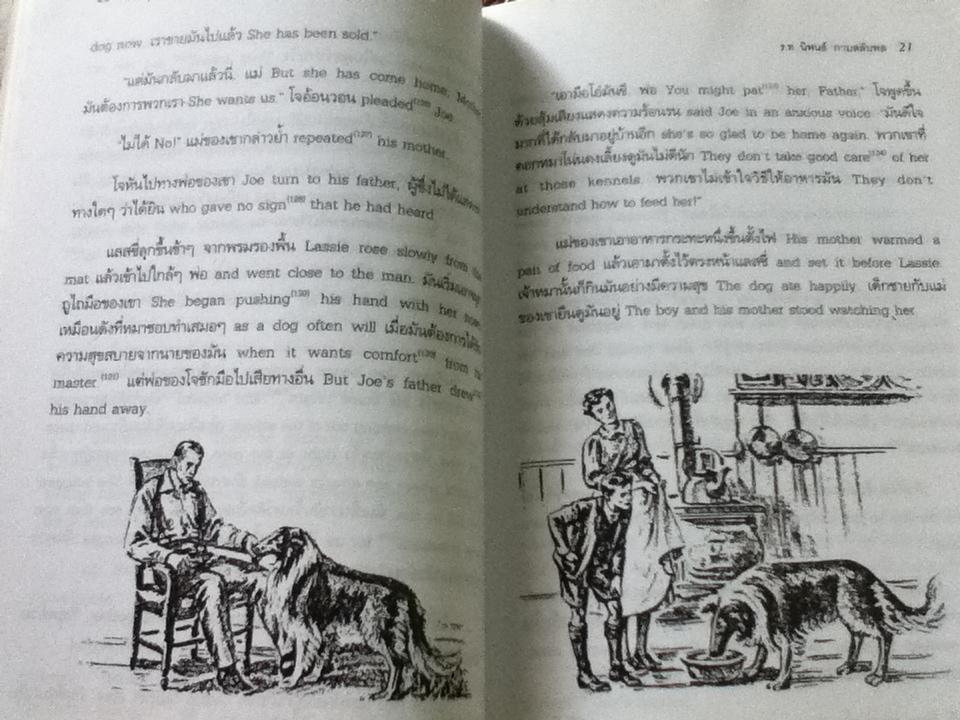 dog now. เราขายมันไปแล้ว She has been sold."
"แต่มันกลับมาแล้วนี่ แม่ But she has come home, Mother
มันต้องการพวกเรา She wants us." โจอ้อนวอน pleaded Joe.
"ไม่ได้ No!" แม่ของเขากล่าวย้ำ repeated his mother.
โจหันไปทางพ่อของเขา Joe turn to his father, ผู้ซึ่งไม่ได้แสดง
ทางใดๆ ว่าได้ยิน who gave no sign that he had heard.
แลสซี่ลุกขึ้นช้าๆ จากพรมรองพื้น Lassie rose slowly from the
mat แล้วเข้าไปใกล้ๆ พ่อ and went close to the man. มันเริ่มเอาจมูก
ถูไถมือของเขา She began pushing his hand with her nose
เหมือนดังที่หมาชอบทำเสมอๆ as a dog often will เมื่อมันต้องการได้รับ
ความสุขสบายจากนายของมัน when it wants comfort from its
master. (131) แต่พ่อของโจชักมือไปเสียทางอื่น But Joe's father drew
his hand away.
ร.ท. นิพนธ์ กาบสลับพล 21
"เอามือโอ๋มันซี พ่อ You might pat her, Father," โจพูดขึ้น
ด้วยสุ้มเสียงแสดงความร้อนรน said Joe in an anxious voice. "มันดีใจ
มากที่ได้กลับมาอยู่บ้านอีก she's so glad to be home again. พวกเขาที่
คอกหมาโน่นคงเลี้ยงดูมันไม่ดีนัก They don't take good care of her
at those kennels. พวกเขาไม่เข้าใจวิธีให้อาหารมัน They don't
understand how to feed her!"
แม่ของเขาเอาอาหารกระทะหนึ่งขึ้นตั้งไฟ His mother warmed a
pan of food แล้วเอามาตั้งไว้ตรงหน้าแลสซี่ and set it before Lassie.
เจ้าหมานั้นก็กินมันอย่างมีความสุข The dog ate happily. เด็กชายกับแม่
ของเขายืนดูมันอยู่ The boy and his mother stood watching her.